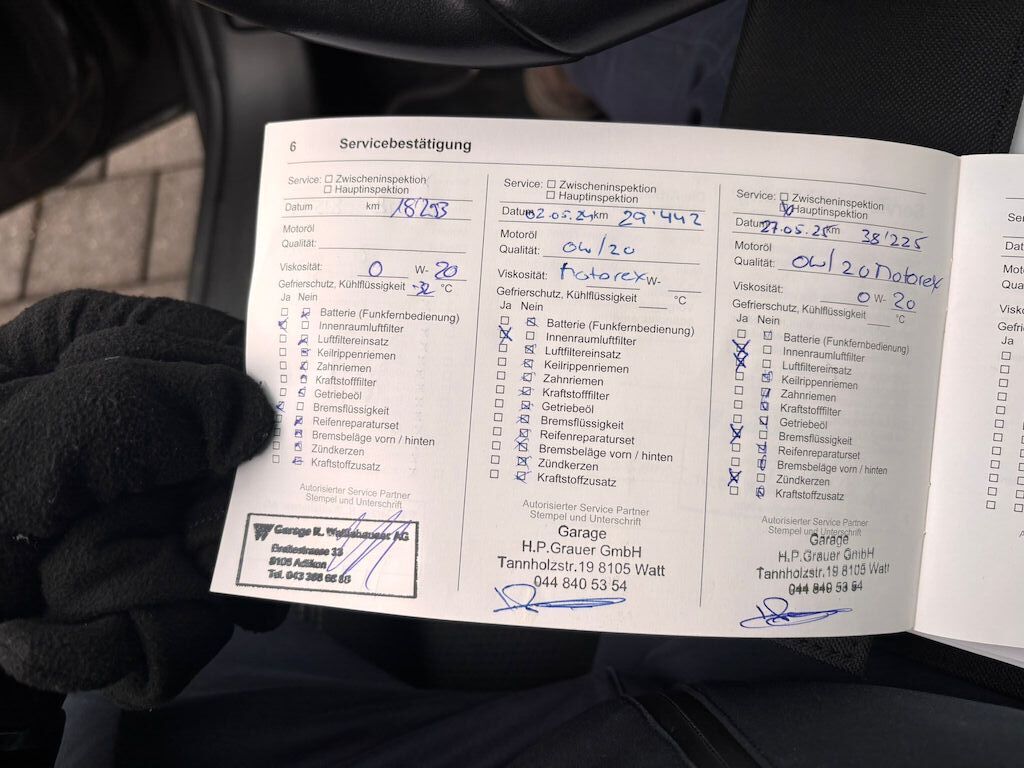 6 Servicebestätigung
Service: ☐ Zwischeninspektion
☐ Hauptinspektion
Datum km 18'293
Motoröl
Qualität:
Viskosität: 0 W- 20
Gefrierschutz, Kühlflüssigkeit -32 °C
Ja Nein
Batterie (Funkfernbedienung)
Innenraumluftfilter
Luftfiltereinsatz
Keilrippenriemen
Zahnriemen
Kraftstofffilter
Getriebeöl
Bremsflüssigkeit
Reifenreparaturset
Bremsbeläge vorn / hinten
Zündkerzen
Kraftstoffzusatz
Autorisierter Service Partner
Stempel und Unterschrift
Garage R. AG
Breitestrasse
Adlikon
Tel. 043
Service: ☐ Zwischeninspektion
☐ Hauptinspektion
Datum 02.05.24 km 29'442
Motoröl
Qualität: 0W/20
Viskosität: Motorex W-
Gefrierschutz, Kühlflüssigkeit °C
Ja Nein
Batterie (Funkfernbedienung)
Innenraumluftfilter
Luftfiltereinsatz
Keilrippenriemen
Zahnriemen
Kraftstofffilter
Getriebeöl
Bremsflüssigkeit
Reifenreparaturset
Bremsbeläge vorn / hinten
Zündkerzen
Kraftstoffzusatz
Autorisierter Service Partner
Stempel und Unterschrift
Garage
H.P.Grauer GmbH
Tannholzstr.19 8105 Watt
044 840 53 54
Service: ☐ Zwischeninspektion
☒ Hauptinspektion
Datum 27.05.25 km 38'225
Motoröl
Qualität: 0W/20 Motorex
Viskosität: 0 W- 20
Gefrierschutz, Kühlflüssigkeit °C
Ja Nein
Batterie (Funkfernbedienung)
Innenraumluftfilter
Luftfiltereinsatz
Keilrippenriemen
Zahnriemen
Kraftstofffilter
Getriebeöl
Bremsflüssigkeit
Reifenreparaturset
Bremsbeläge vorn / hinten
Zündkerzen
Kraftstoffzusatz
Autorisierter Service Partner
Stempel und Unterschrift
Garage
H.P.Grauer GmbH
Tannholzstr.19 8105 Watt
044 840 53 54
Ja